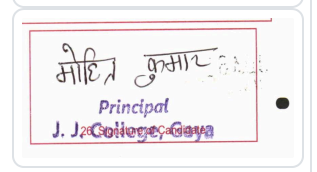 मोहित कुमार
Principal
J. J. College, Gaya
26. Signature of Candidate